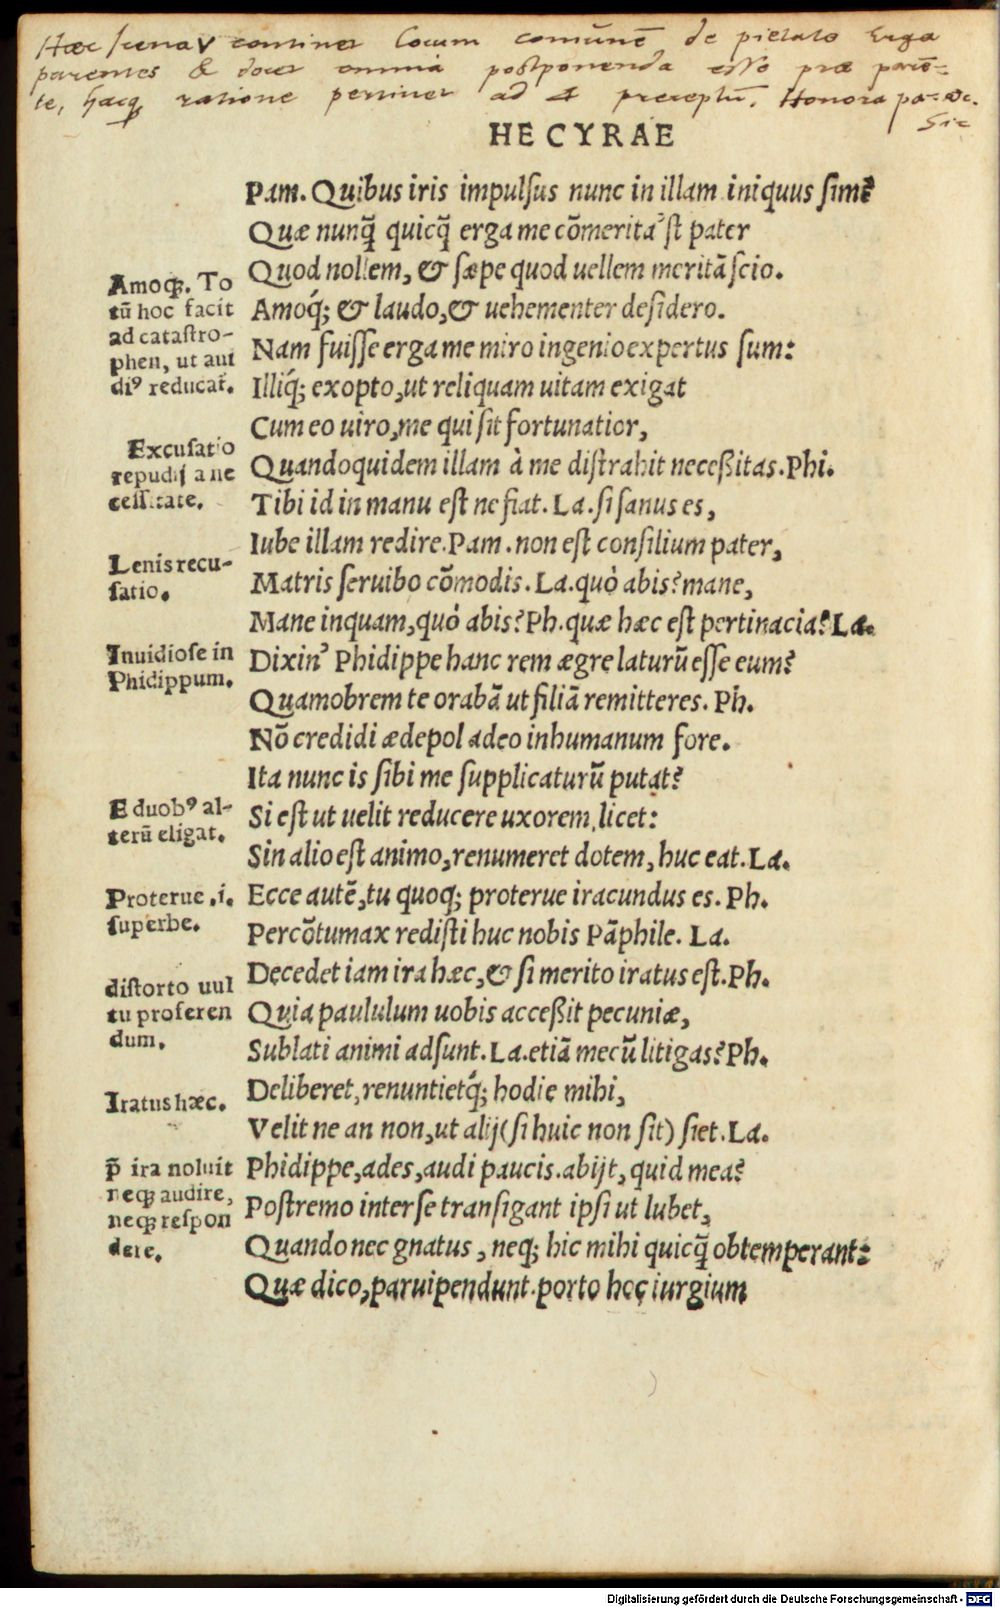 Hæc scena V continet Locum comūnē de pietate Erga
parentes & docet omnia postponenda esse præ parē-
te, hacq; ratione pertinet ad 4 preceptū. Honora pa-
HECYRAE
Pam. Quibus iris impulsus nunc in illam iniquus sim?
Quæ nunq̃ quicq̃ erga me cõmerita'st pater
Amoq;. To
tũ hoc facit
ad catastro-
phen, ut aui
diꝰ reducat.
Quod nollem, & sæpe quod uellem meritã scio.
Amoq́; & laudo, & uehementer desidero.
Nam fuisse erga me miro ingenio expertus sum:
Illiq́; exopto, ut reliquam uitam exigat
Cum eo uiro, me qui sit fortunatior,
Excusatio
repudij a ne
cessitate.
Quandoquidem illam à me distrahit neceßitas. Phi.
Tibi id in manu est ne fiat. La. si sanus es,
Iube illam redire. Pam. non est consilium pater,
Lenis recu-
satio.
Matris seruibo cõmodis. La. quò abis? mane,
Mane inquam, quò abis? Ph. quæ hæc est pertinacia? La.
Inuidiose in
Phidippum.
Dixin' Phidippe hanc rem ægre laturũ esse eum?
Quamobrem te orabã ut filiã remitteres. Ph.
Nõ credidi ædepol adeo inhumanum fore.
Ita nunc is sibi me supplicaturũ putat?
E duobꝰ al-
terũ eligat.
Si est ut uelit reducere uxorem, licet:
Sin alio est animo, renumeret dotem, huc eat. La.
Proterue .i.
superbe.
Ecce autē, tu quoq; proterue iracundus es. Ph.
Percõtumax redisti huc nobis Pãphile. La.
distorto uul
tu proferen
dum.
Decedet iam ira hæc, & si merito iratus est. Ph.
Quia paululum uobis acceßit pecuniæ,
Sublati animi adsunt. La. etiã mecũ litigas? Ph.
Iratus hæc.
Deliberet, renuntietq́; hodie mihi,
Velit ne an non, ut alij (si huic non sit) siet. La.
p̃ ira noluit
neq; audire,
neq; respon
dere.
Phidippe, ades, audi paucis. abijt, quid mea?
Postremo inter se transigant ipsi ut lubet,
Quando nec gnatus, neq; hic mihi quicq̃ obtemperant:
Quæ dico, paruipendunt. porto hoc iurgium
Digitalisierung gefördert durch die Deutsche Forschungsgemeinschaft - DFG